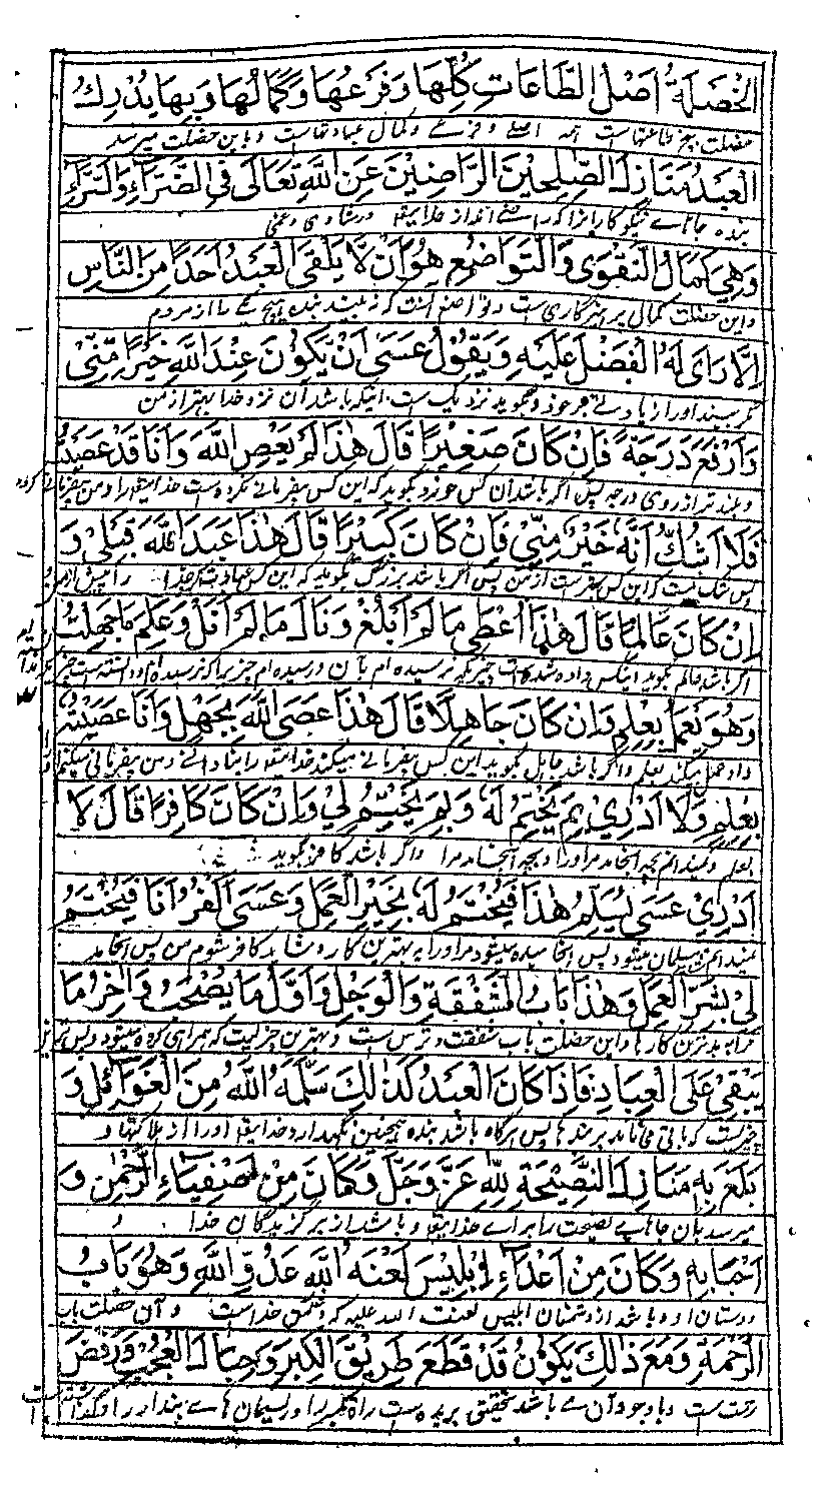 الخصلة أصل الطاعات كلها وفرعها وكمالها وبها يدرك
طاعتهاست همه اصلے و فرعے و کمال عبادتهاست و باین خصلت میرسد
العبد منازل الصلحين الراضين عن الله تعالى في الضراء والسراء
بنده جاهاے نیکوکارانرا که راضے اند از خدایتعالی در شادی و غمی
وهي كمال التقوى والتواضع هو أن لا يلقى العبد أحدا من الناس
و این خصلت کمال پرهیزگاری ست و تواضع آنست که نه بیند بنده هیچ یکے را از مردم
إلا رأى له الفضل عليه ويقول عسى أن يكون عند الله خيرا مني
مگر بیند او را زیادتے بر خود و بگوید نزدیک ست اینکه باشد آن نزد خدا بهتر از من
وأرفع درجة فإن كان صغيرا قال هذا لم يعص الله وأنا قد عصيت
و بلندتر از روی درجه پس اگر باشد آن کس خورد بگوید که این کس بیفرمانے نکرده است خدایتعالی را و من بیفرمانے کرده
فلا أشك أنه خير مني فإن كان كبيرا قال هذا عبد الله قبلي و
پس شک نیست که این کس بهتر ست از من پس اگر باشد بزرگ بگوید که این کس عبادت کرد خدا را پیش از من و
إن كان عالما قال هذا أعطي ما لم أبلغ ونال ما لم أنل وعلم ما جهلت
اگر باشد عالم بگوید اینکس داده شده است چیزیکه نرسیده ام بآن و رسیده ام چیزیرا که نرسیده ام و دانسته ست
وهو يعمل بعلم وإن كان جاهلا قال هذا عصى الله بجهل وأنا عصيته
و او عمل میکند بعلم و اگر باشد جاهل بگوید این کس بیفرمانے میکند خدایتعالی را بنادانے و من بیفرمانی میکنم
بعلم ولا أدري بم يختم له وبم يختم لي وإن كان كافرا قال لا
بعلم و نمیدانم بچه انجامد مر او را و بچه انجامد مرا و اگر باشد کافر گوید
أدري عسى يسلم هذا فيختم له بخير العمل وعسى أكفر أنا فيختم
نمیدانم شاید مسلمان میشود پس انجامیده میشود مر او را به بهترین کار و شاید کافر شوم من پس انجامد
لي بشر العمل وهذا باب الشفقة والوجل وأول ما يصحب وآخر ما
مرا به بدترین کارها و این خصلت باب شفقت و ترس است و بهترین چیزیست که همراهی کرده میشود و پس‌ترین
يبقى على العباد فإذا كان العبد كذلك سلمه الله من الغوائل و
چیزیست که باقی می‌ماند بر بندها پس هرگاه باشد بنده همچنین نگهدارد خدایتعالی او را از هلاکتها و
بلغ به منازل النصيحة لله عز وجل وكان من أصفياء الرحمن و
میرسد بآن جاهاے نصیحت را براے خدایتعالی و باشد از برگزیدگان خدا و
أحبابه وكان من أعداء إبليس لعنه الله عدو الله وهو باب
دوستان او و باشد از دشمنان ابلیس لعنت الله علیه که دشمن خداست و آن خصلت باب
الرحمة ومع ذلك يكون قد قطع طريق الكبر وحبال العجب ورفض
رحمت ست و باوجود آن مے باشد تحقیق بریده است راه تکبر را و ریسمان هاے پندار را و گذاشته است